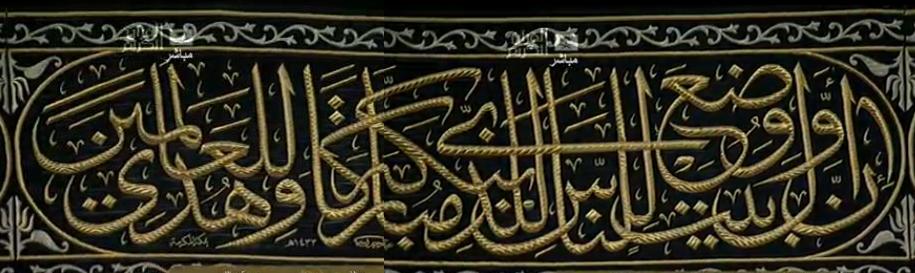 إن أول بيت وضع للناس للذي ببكة مباركا وهدى للعالمين
مباشر
مباشر
١٤٣٢هـ